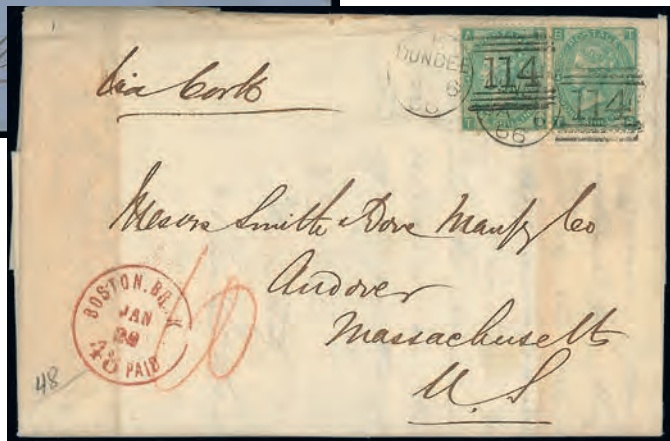 via Cork
DUNDEE
6
66
114
POSTAGE
114
66
Messrs Smith & Dove Manufg Co
Andover
Massachusetts
U. S
BOSTON. BR. PK
JAN
29
48 PAID
48